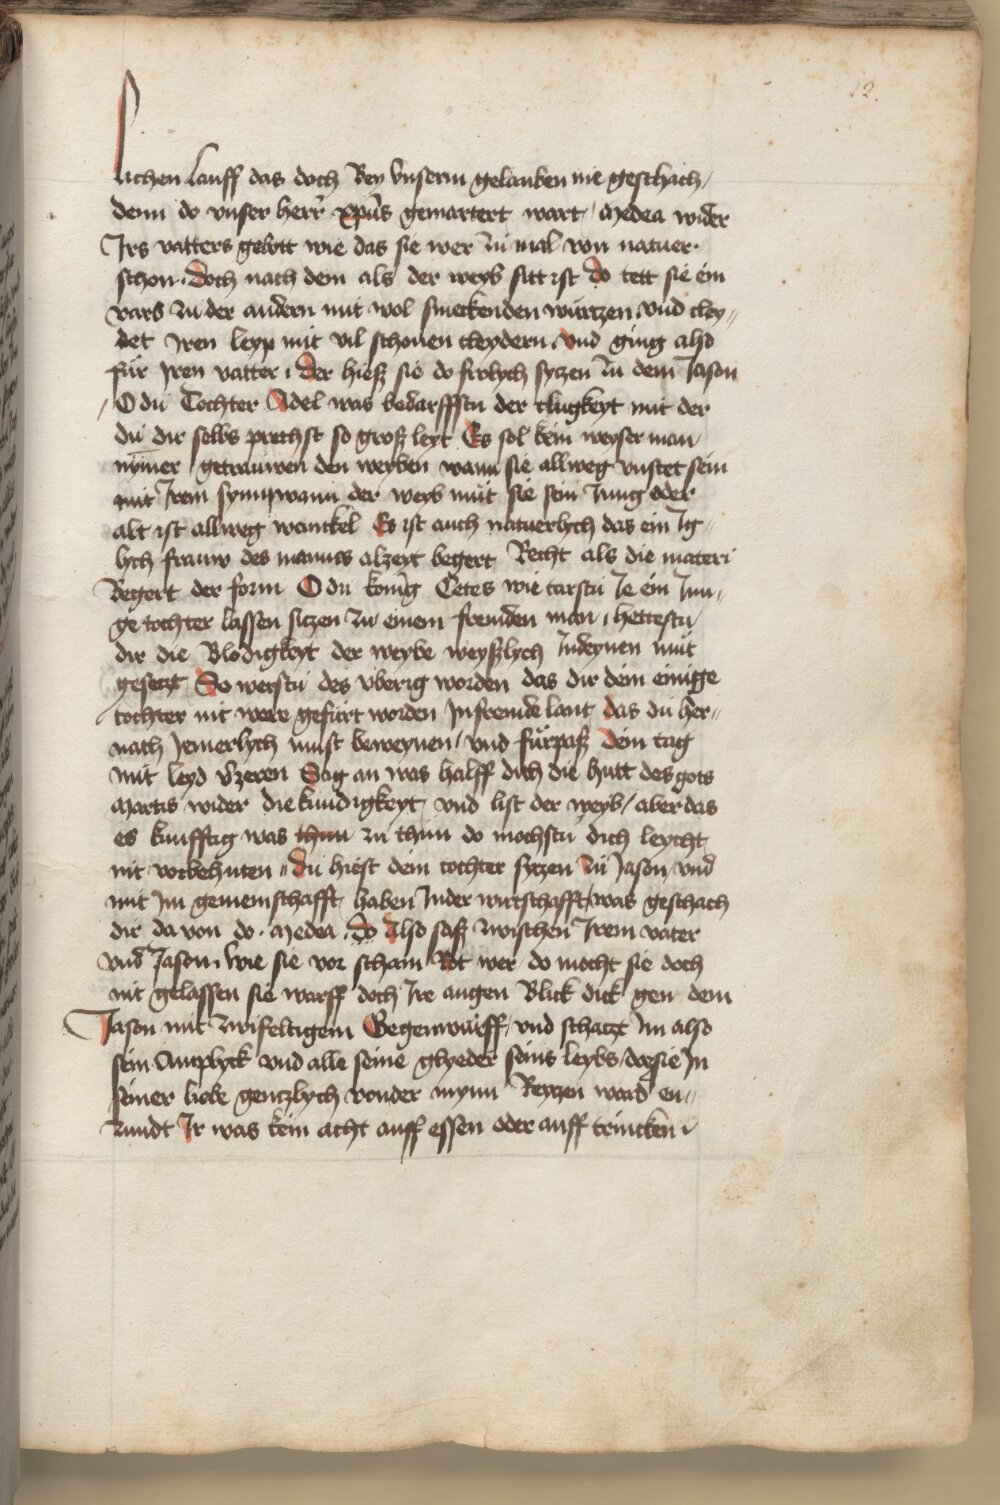 12.
lichen lauff das doch Bey vnserm gelauben nie geschach /
denn do vnser herr xpūs gemartert wart / Medea wider
Jrs vatters gebott wie das sie wer zu mal von natuer ·
schon · doch nach dem als der weyb sitt ist do tett sie ein
vars zu der andern mit wol smeckenden würtzen · vnd cley〃
det Jren leyp mit vil schonen cleydern · vnd ging also
für Jren vatter · der hiesz sie do frolych sytzen zu dem Jason
/ O du Tochter Adel was bedarffstu der clugkeyt mit der
du dir selbs prechst so grosz leyt Es sol kein weyser man
nymer getrauwen den weyben wann sie allweg vnstet sein
mit Jrem synn wann der weyb mut sie sein Jung oder
alt ist allweg wanckel Es ist auch natuerlych das ein Jg〃
lych frauw des mannes alzeyt begert Recht als die materi
Begert der form O du konig Cetes wie tarstu Je ein Jun〃
ge tochter lassen sitzen zu einem fremden man · hettestu
dir die Blodigkeyt der weybe weyszlych Jn deynen mut
gesetzt So werstu des vberig worden das dir dein einige
tochter nit were gefürt worden Jn fremde lant das du her〃
nach Jemerlych must beweynen / vnd fürpasz dein tag
mit leyd v̄zeren Sag an was halff dich die hutt des gots
Martis wider die kundigkeyt vnd list der weyb / aber das
es kunfftig was thun zu thun do mochstu dich leycht
nit vorbehuten · du hiest dein tochter sytzen zu Jason vnd
mit Jm gemeinschafft haben Jn der wirtschafft / was geschach
dir da von do · Medea · do Also sasz zwischen Jrem vater
vnd Jason · wie sie vor scham Rot wer do mocht sie doch
nit gelassen sie warff doch Jre augen Blick dick gen dem
Jason mit zwifeltigem Gegenwürff / vnd schatzt Jm also
sein Antplyck vnd alle seine glyeder seins leybs / das sie Jn
seiner liebe gentzlych von der mynn Reytzen ward en〃
zundt Jr was kein acht auff essen oder auff trincken ·